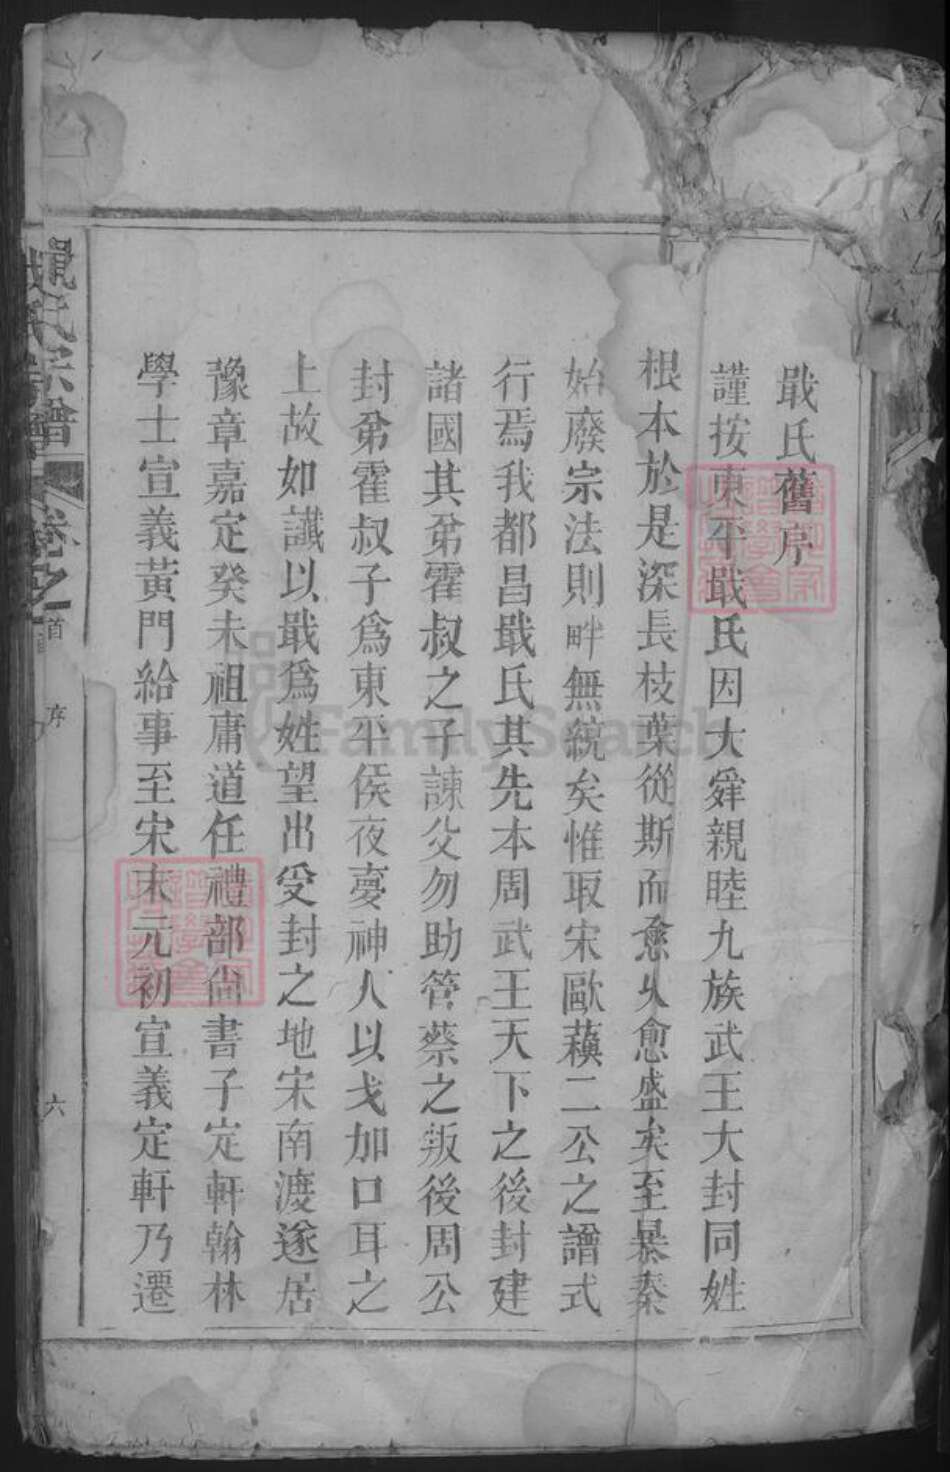 戢氏舊序
謹按東平戢氏因大舜親睦九族武王大封同姓
根本於是深長枝葉從斯而愈久愈盛矣至暴秦
始廢宗法則畔無統矣惟取宋歐蘓二公之譜式
行焉我都昌戢氏其先本周武王天下之後封建
諸國其弟霍叔之子諫父勿助管蔡之叛後周公
封弟霍叔子爲東平侯夜夣神人以戈加口耳之
上故如讖以戢爲姓望出受封之地宋南渡遂居
豫章嘉定癸未祖庸道任禮部尙書子定軒翰林
學士宣義黃門給事至宋末元初宣義定軒乃遷
戢氏宗譜
卷之首
序
六
FamilySearch